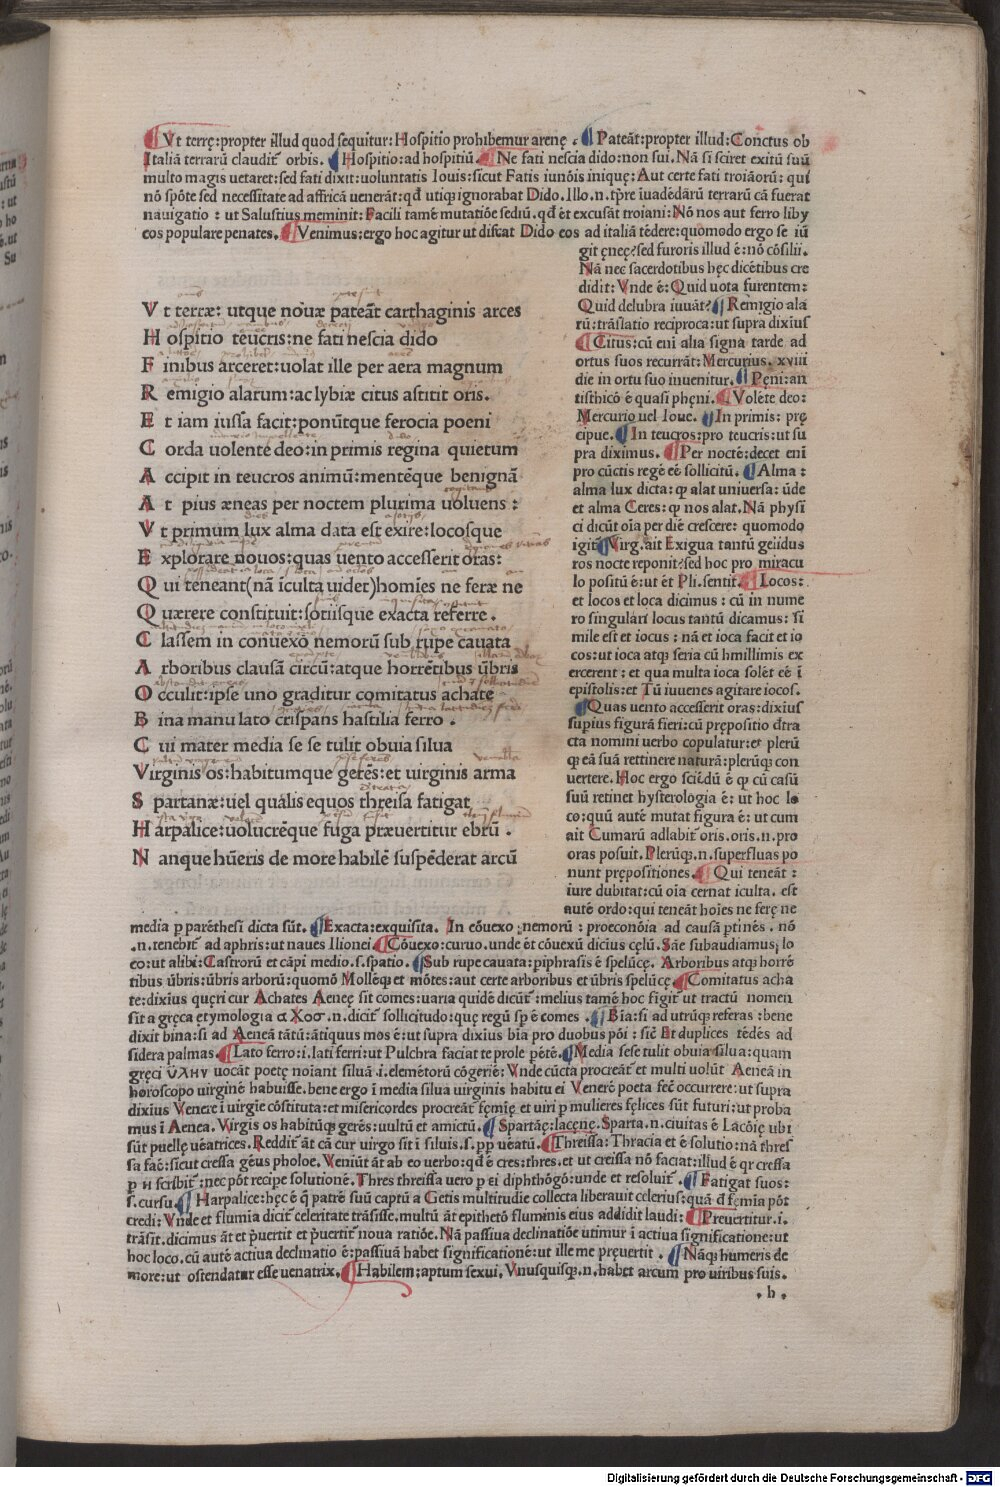 Vt terrę:propter illud quod sequitur:Hospitio prohibemur arenę . Pateāt:propter illud:Cunctus ob
Italiā terrarū claudit orbis. Hospitio:ad hospitiū. Ne fati nescia dido:non sui. Nā si sciret exitū suū
multo magis uetaret:sed fati dixit:uoluntatis Iouis:sicut Fatis iunōis iniquę: Aut certe fati troiāorū: qui
nō spōte sed necessitate ad affricā uenerāt:qđ utiq; ignorabat Dido. Illo .n. tp̄re iuadēdārū terrarū cā fuerat
nauigatio : ut Salustius meminit: Facili tamē mutatiōe sediū.qđ et excusāt troiani:Nō nos aut ferro liby
cos populare penates. Venimus:ergo hoc agitur ut discat Dido eos ad italiā tēdere:quomodo ergo se iū
git ęneę?sed furoris illud ē:nō cōsilii.
Nā nec sacerdotibus hęc dicētibus cre
didit: Vnde ē:Quid uota furentem:
Quid delubra iuuāt? Remigio ala
rū:trāslatio reciproca:ut supra dixius
Citus:cū eni alia signa tarde ad
ortus suos recurrāt:Mercurius. xviii
die in ortu suo inuenitur. Pęni:an
tisthicō ē quasi phęni. Volēte deo:
Mercurio uel Ioue. In primis: prę
cipue. In teucros:pro teucris:ut su
pra diximus. Per nocté:decet eni
pro cūctis regē eē sollicitū. Alma :
alma lux dicta: qp alat uniuersa: ūde
et alma Ceres: qp nos alat. Nā physi
ci dicūt oīa per diē crescere: quomodo
igit Virg. ait Exigua tantū gelidus
ros nocte reponit?sed hoc pro miracu
lo positū ē:ut ēt Pli. sentit. Locos:
et locos et loca dicimus : cū in nume
ro singulari locus tantū dicamus: si
mile est et iocus : nā et ioca facit et io
cos:ut ioca atq; seria cū hmillimis ex
ercerent : et qua multa ioca solēt eē ī
epistolis:et Tū iuuenes agitare iocos.
Quas uento accesserit oras:dixius
supius figurā fieri:cū prępositio đtra
cta nomini uerbo copulatur:et plerū
q; eā suā rettinere naturā:plerūq; con
uertere. Hoc ergo sciēdū ē qp cū casū
suū retinet hysterologia ē: ut hoc lo
co:quū autē mutat figura ē: ut cum
ait Cumarū adlabit oris.oris.n.pro
oras posuit. Plerūq;.n.superfluas po
nunt prępositiones. Qui teneāt :
iure dubitat:cū oīa cernat iculta. est
autē ordo:qui teneāt hoīes ne ferę ne
Vt terræ: utque nouæ pateāt carthaginis arces
Hospitio teucris:ne fati nescia dido
Finibus arceret:uolat ille per aera magnum
Remigio alarum:ac lybiæ citus astitit oris.
Et iam iussa facit:ponūtque ferocia poeni
Corda uolentē deo:in primis regina quietum
Accipit in teucros animū:mentēque benignā
At pius æneas per noctem plurima uoluens :
Vt primum lux alma data est exire:locosque
Explorare nouos:quas uento accesserit oras:
Qui teneant(nā īculta uidet)homīes ne feræ ne
Quærere constituit:sociisque exacta referre .
Classem in conuexo nemorū sub rupe cauata
Arboribus clausā circū:atque horrētibus ūbris
Occulit:ipse uno graditur comitatus achate
Bina manu lato crispans hastilia ferro .
Cui mater media se se tulit obuia silua
Virginis os:habitumque gerēs:et uirginis arma
Spartanæ:uel qualis equos threisa fatigat
Harpalice:uolucrēque fuga præuertitur ebrū .
Nanque hūeris de more habilē suspēderat arcū
media p parēthesī dicta sūt. Exacta:exquisita. In cōuexo nemorū : proeconōia ad causā ptinēs . nō
.n.tenebit ad aphris:ut naues Ilionei. Cōuexo:curuo.unde ēt cōuexū dicius cęlū. Sāe subaudiamus; lo
co:ut alibi: Castrorū et cāpi medio.s.spatio. Sub rupe cauata:piphrasis ē spelūcę. Arboribus atq; horrē
tibus ūbris:ūbris arborū:quomō Mollēq; et mōtes:aut certe arboribus et ūbris spelūcę. Comitatus acha
te:dixius quęri cur Achates Aeneę sit comes:uaria quidē dicūt:melius tamē hoc figit ut tractū nomen
sit a gręca etymologia αχοσ.n.dicit sollicitudo:quę regū sp ē comes . Bīa:si ad utrūq; referas : bene
dixit bina:si ad Aeneā tātū:ātiquus mos ē:ut supra dixius bīa pro duobus pōi : sic Et duplices tēdēs ad
sidera palmas. Lato ferro:i.lati ferri:ut Pulchra faciat te prole pētē. Media sese tulit obuia silua:quam
gręci υλην uocāt poetę noīant siluā .i.elemētorū cōgeriē: Vnde cūcta procreāt et multi uolūt Aeneā in
horoscopo uirginē habuisse.bene ergo ī media silua uirginis habitu ei Venerē poeta fec occurrere:ut supra
dixius Venerē ī uirgīe cōstituta:et misericordes procreāt fęmīę et uiri p mulieres fęlices sūt futuri:ut proba
mus ī Aenea. Virgīs os habitūq; gerēs:uultū et amictū. Spartāę:lacęnę. Sparta.n.ciuitas ē Lacōię ubi
sūt puellę uēatrices. Reddit āt cā cur uirgo sit ī siluis.s.pp uēatū. Threissa: Thracia et ē solutio:nā thres
sa fac:sicut cressa gēus pholoe. Veniūt āt ab eo uerbo:qđ ē cres:thres.et ut creissa nō faciat:illud ē qr cressa
p н scribit:nec pōt recipe solutionē. Thres threissa uero p ei diphthōgō:unde et resoluit. Fatigat suos:
s.cursu. Harpalice:hęc ē q̄ patrē suū captū a Getis multitudīe collecta liberauit celerius:quā đ fęmīa pōt
credi: Vnde et flumīa dicit celeritate trāsisse.multū āt epithetō fluminis eius addidit laudi: Pręuertitur.i.
trāsit.dicimus āt et p̄uertit et p̄uertit noua ratiōe. Nā passiua declinatiōe utimur ī actiua significatione:ut
hoc loco.cū autē actiua declinatio ē:passiuā habet significationē:ut ille me pręuertit . Nāq; humeris de
more:ut ostendatur esse uenatrix. Habilem:aptum sexui. Vnusquisq;.n.habet arcum pro uiribus suis.
. h .
Digitalisierung gefördert durch die Deutsche Forschungsgemeinschaft - DFG